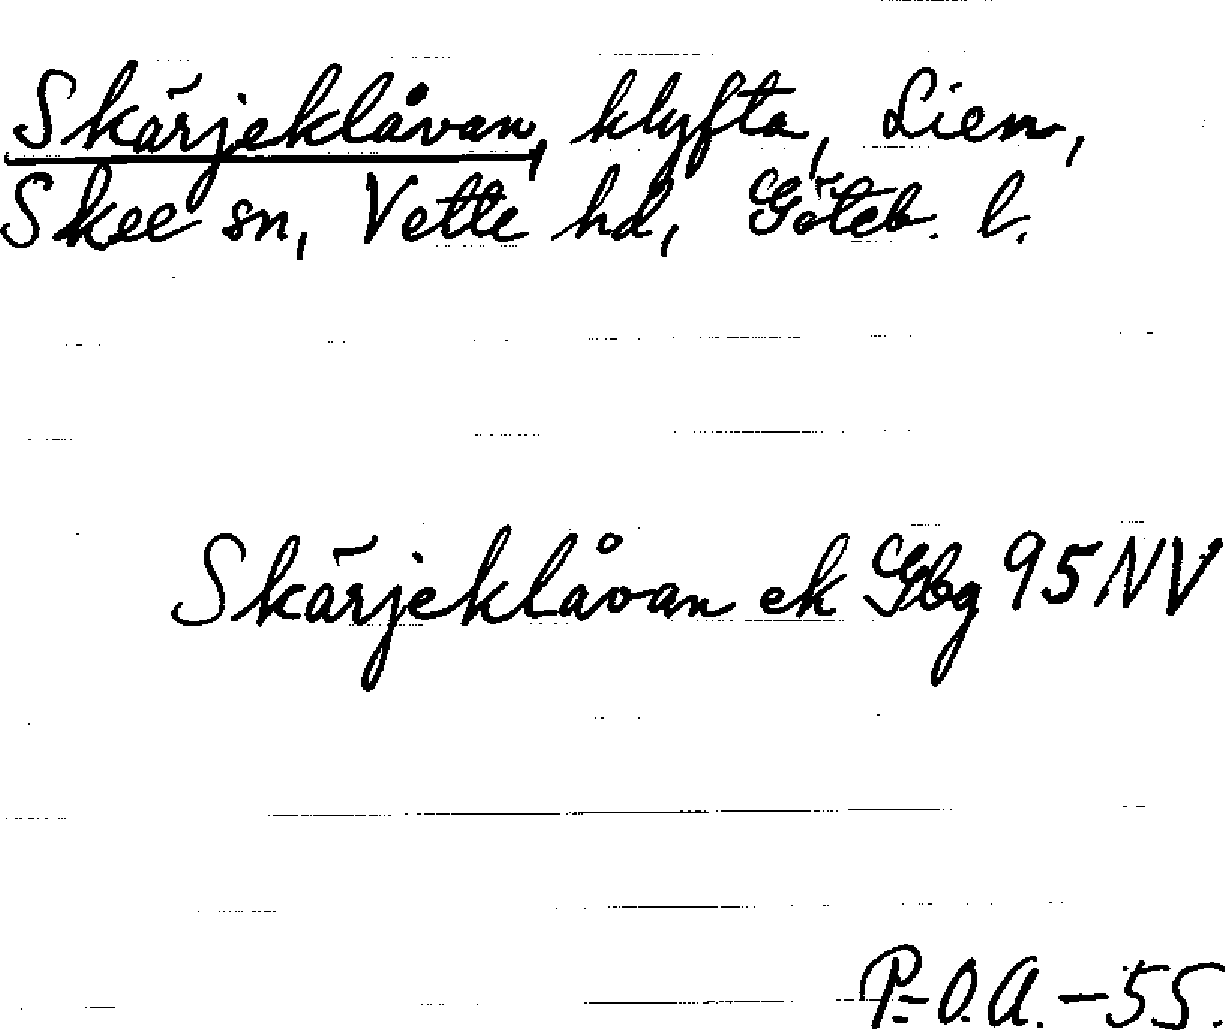 Skärjeklåvan, klyfta, Lien,
Skee sn, Vette hd, Göteb. l.
Skärjeklåvan ek Gbg 95 NV
P.-O.A. -55.